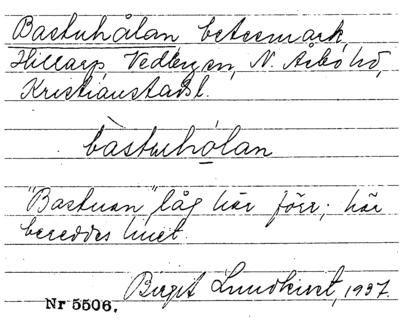 Bastuhålan betesmark,
Hillarp, Vedbyen, N. Åsbo hd,
Kristianstads l.
bàstuhọlan
"Bastuan" låg här förr; här
bereddes linet.
Birgit Lundkvist, 1937.
Nr 5506.